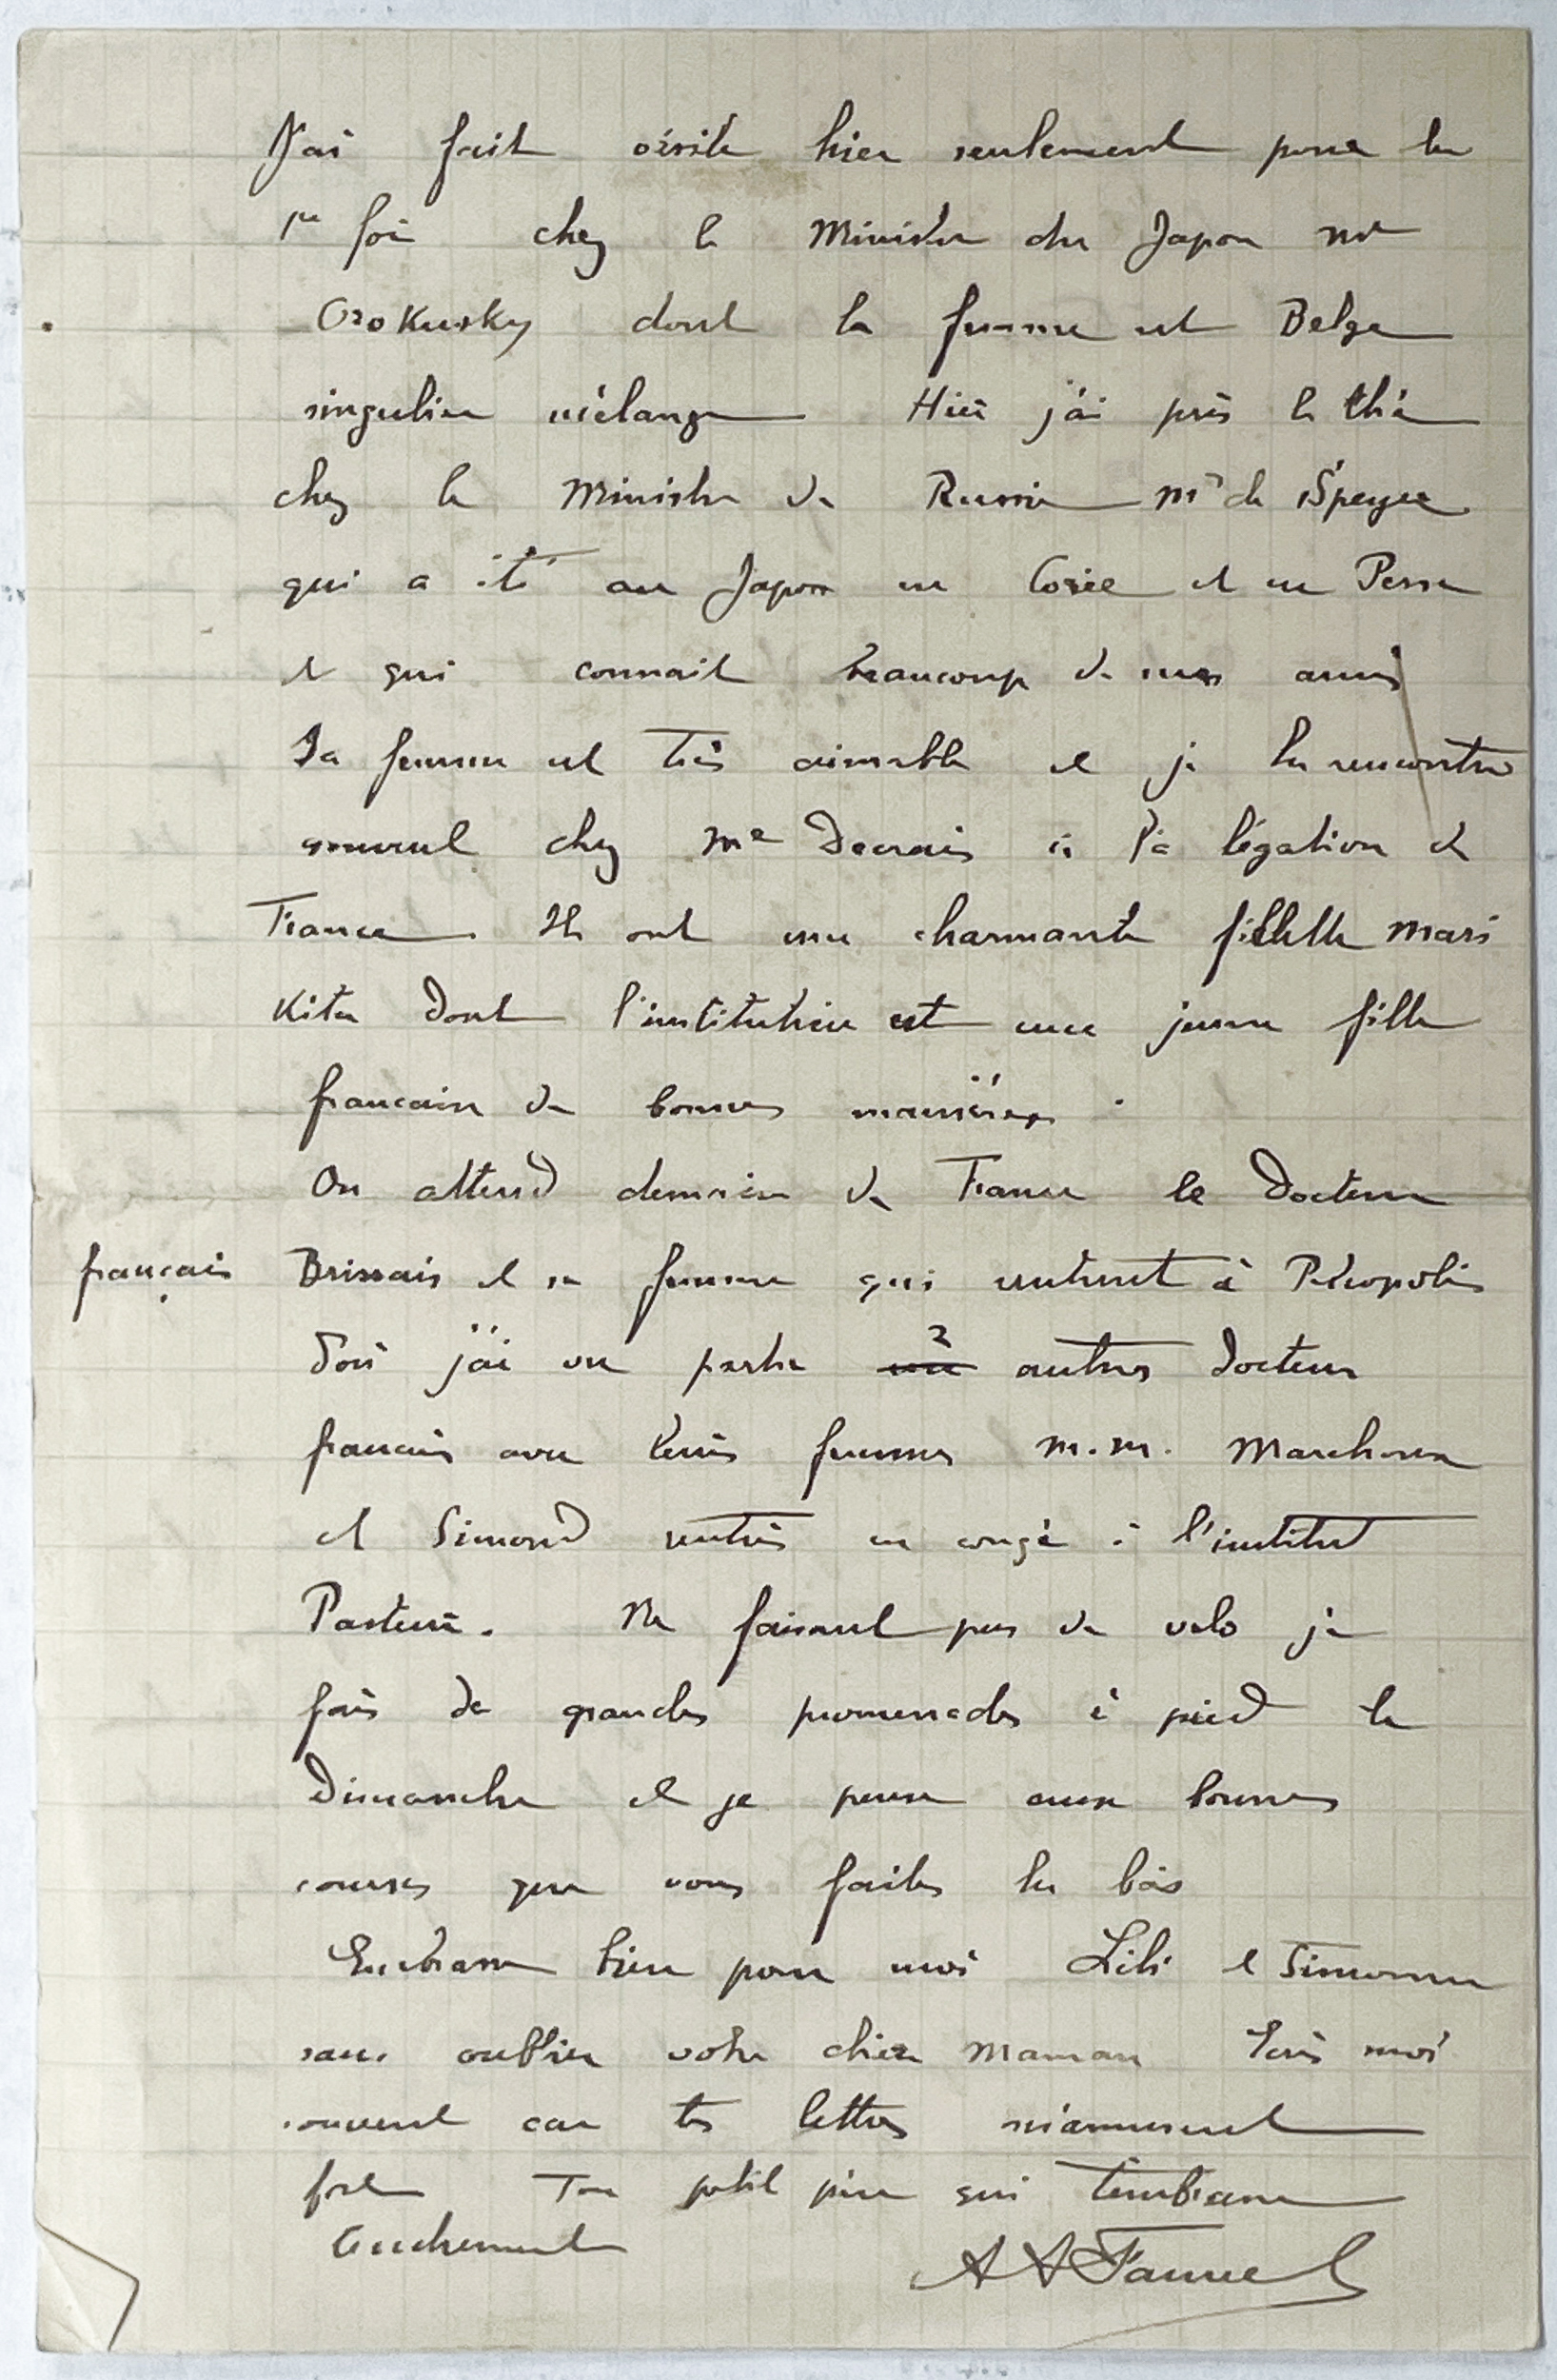 J'ai fait visite hier seulement pour la
1re fois chez le Ministre du Japon Mr
Orokusky dont la femme est Belge
singulier mélange Hier j'ai pris le thé
chez le Ministre de Russie Mr de Speyer
qui a été au Japon en Corée et en Perse
et qui connait beaucoup de mes amis
Sa femme est très aimable et je la rencontre
souvent chez Me Decrais à la légation de
France. Ils ont une charmante fillette Mari
Kita dont l'institutrice est une jeune fille
francaise de bonnes manières.
On attend demain de France le Docteur
français Brissais et sa femme qui rentrent à Petropolis
d'où j'ai vu partir 2 autres docteurs
francais avec leurs femmes M.M. Marchoux
et Simond rentrés en congé à l'institut
Pasteur. Ne faisant pas de velo je
fais de grandes promenades à pied le
Dimanche et je pense aux bonnes
courses que vous faites la bas
Embrasse bien pour moi Lili et Simonne
sans oublier votre chère Maman Ecris moi
souvent car tes lettres m'amusent
fort Ton petit père qui t'embrasse
tendrement